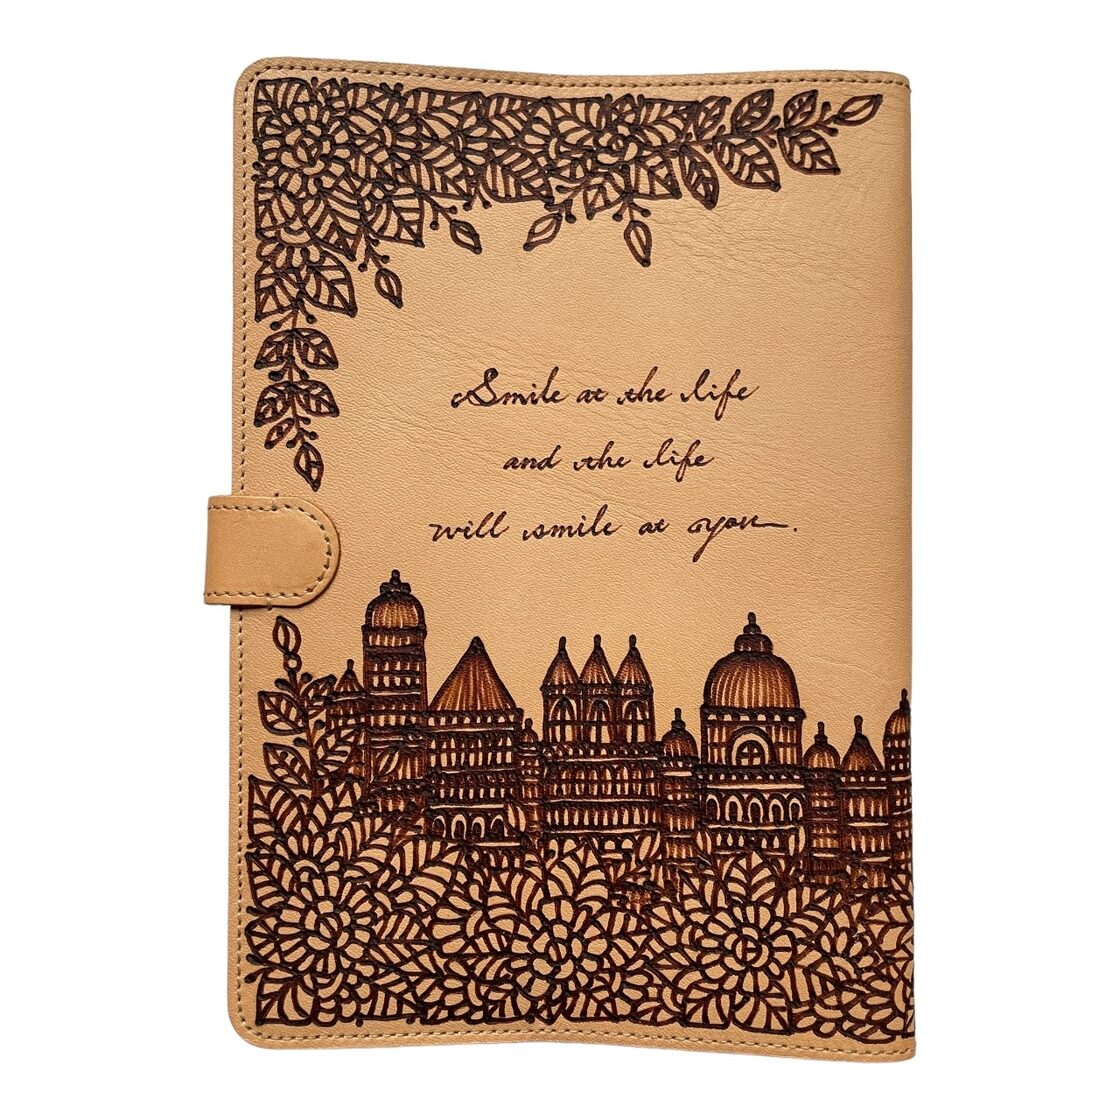 Smile at the life
and the life
will smile at you.